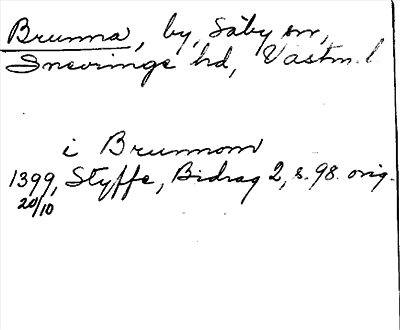 Brunna, by, Säby sn,
Snevringe hd, Västm. l.
i Brunnom
1399, Styffe, Bidrag 2, s. 98. orig.
20/10